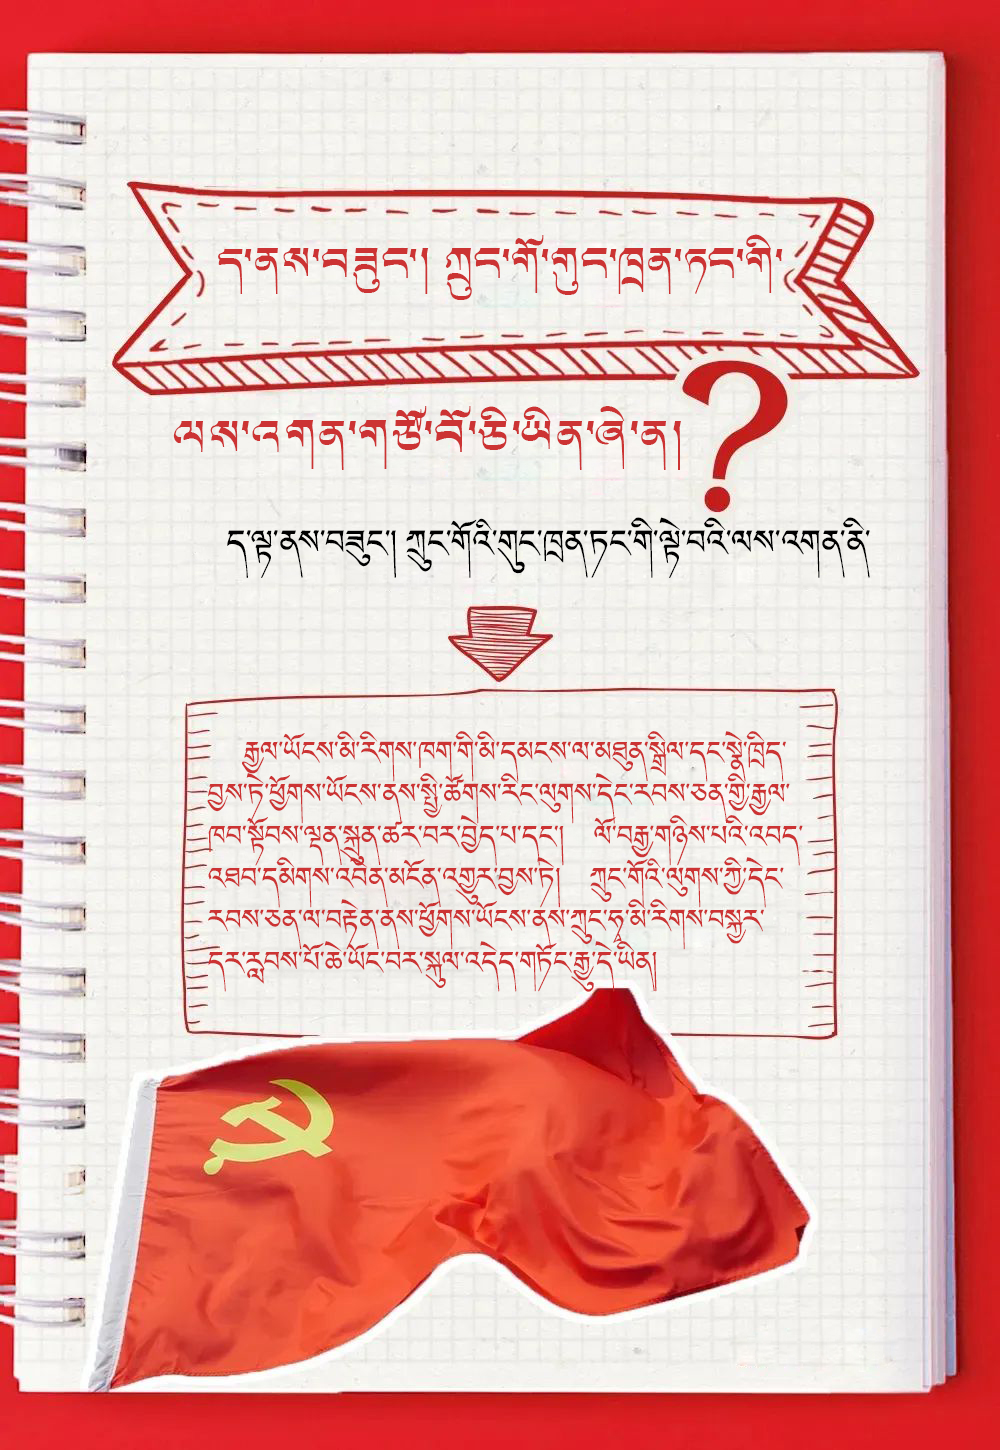 ད་ནས་བཟུང་། ཀྲུང་གོ་གུང་ཁྲན་ཏང་གི་
ལས་འགན་གཙོ་བོ་ཅི་ཡིན་ཞེ་ན།
?
ད་ལྟ་ནས་བཟུང་། ཀྲུང་གོའི་གུང་ཁྲན་ཏང་གི་ལྟེ་བའི་ལས་འགན་ནི་
རྒྱལ་ཡོངས་མི་རིགས་ཁག་གི་མི་དམངས་ལ་མཐུན་སྒྲིལ་དང་སྣེ་ཁྲིད་
བྱས་ཏེ་ཕྱོགས་ཡོངས་ནས་སྤྱི་ཚོགས་རིང་ལུགས་དེང་རབས་ཅན་གྱི་རྒྱལ་
ཁབ་སྟོབས་ལྡན་སྐྲུན་ཚར་བར་བྱེད་པ་དང་། ལོ་བརྒྱ་གཉིས་པའི་འབད་
འཐབ་དམིགས་འབེན་མངོན་འགྱུར་བྱས་ཏེ། ཀྲུང་གོའི་ལུགས་ཀྱི་དེང་
རབས་ཅན་ལ་བརྟེན་ནས་ཕྱོགས་ཡོངས་ནས་ཀྲུང་ཧྭ་མི་རིགས་བསྐྱར་
དར་རླབས་པོ་ཆེ་ཡོང་བར་སྐུལ་འདེད་གཏོང་རྒྱུ་དེ་ཡིན།